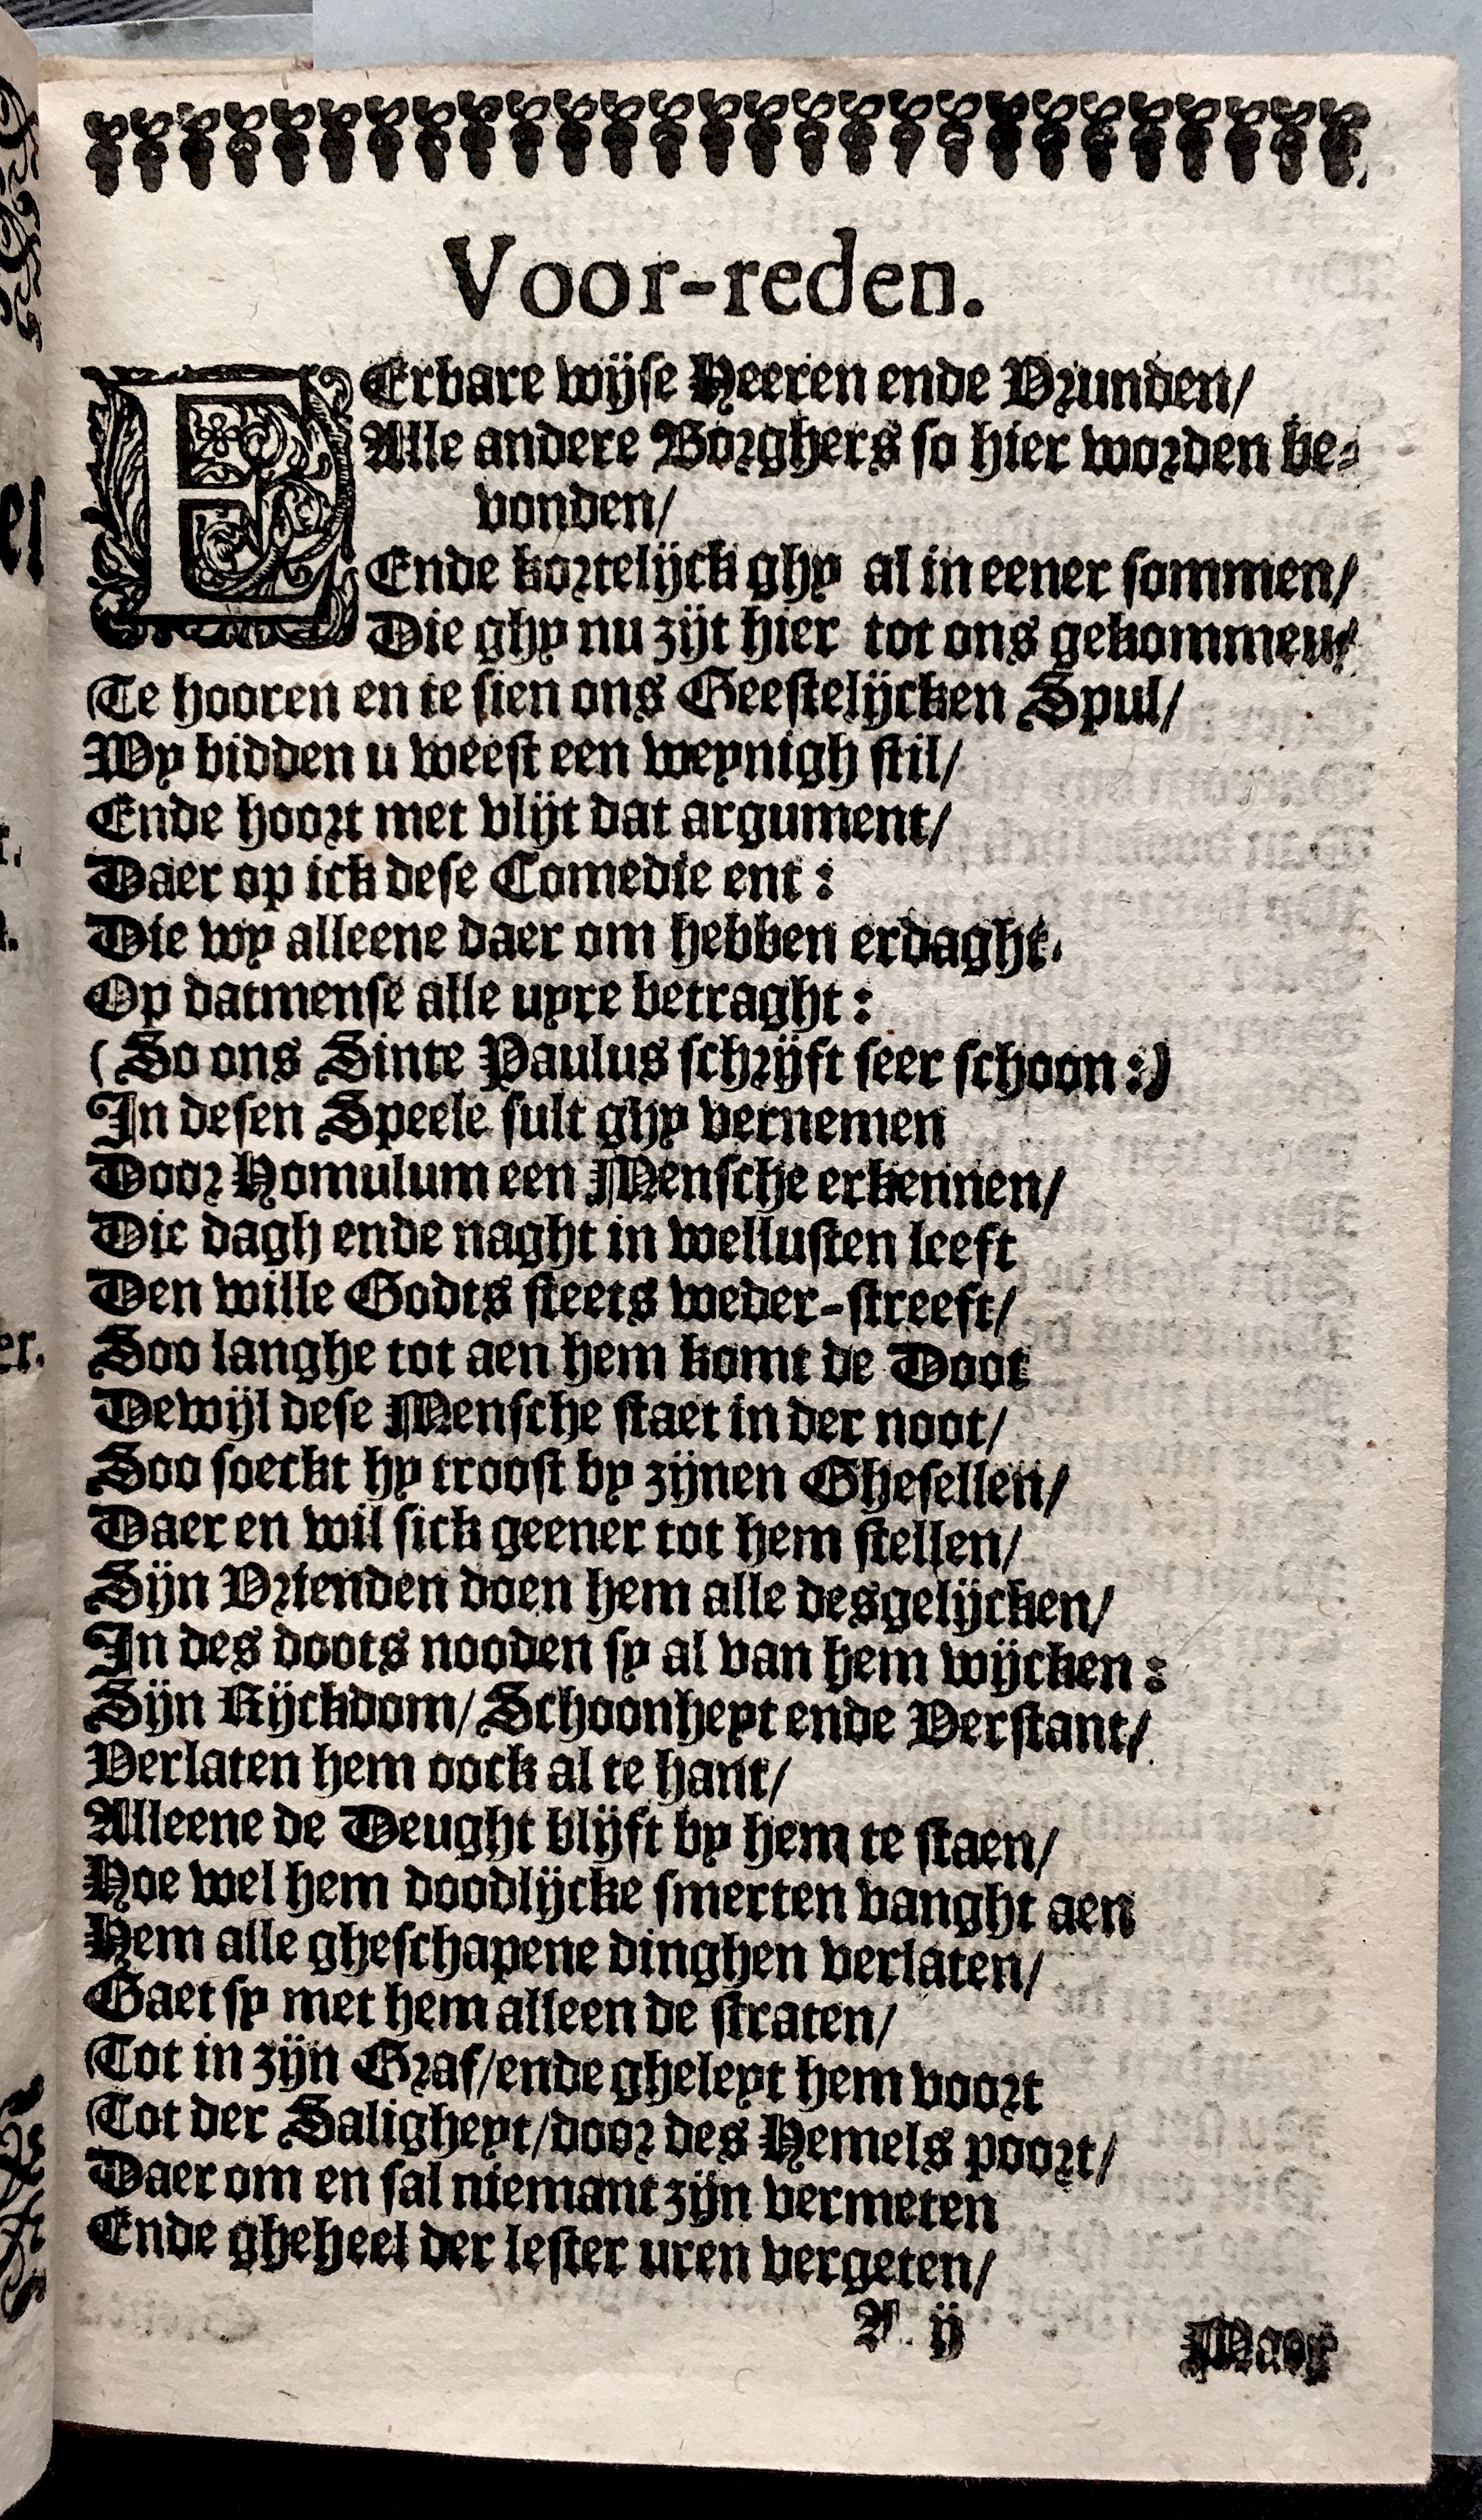 Voor-reden.
EErbare wijse Heeren ende Vrunden/
Alle andere Borghers so hier worden be-
vonden/
Ende kortelijck ghy al in eener sommen/
Die ghy nu zijt hier tot ons gekommen/
Te hooren en te sien ons Geestelijcken Spul/
Wy bidden u weest een weynigh stil/
Ende hoort met vlijt dat argument/
Daer op ick dese Comedie ent:
Die wy alleene daer om hebben erdaght.
Op datmense alle uyre betraght:
(So ons Sinte Paulus schrijft seer schoon:)
In desen Speele sult ghy vernemen
Door Homulum een Mensche erkennen/
Die dagh ende naght in wellusten leeft
Den wille Godts steets weder-streeft/
Soo langhe tot aen hem komt de Doot
Dewijl dese Mensche staet in der noot/
Soo soeckt hy troost by zijnen Ghesellen/
Daer en wil sick geener tot hem stellen/
Sijn Vrienden doen hem alle desgelijcken/
In des doots nooden sy al van hem wijcken:
Sijn Rijckdom/ Schoonheyt ende Verstant/
Verlaten hem oock al te hant/
Alleene de Deught blijft by hem te staen/
Hoe wel hem doodlijcke smerten vanght aen
Hem alle gheschapene dinghen verlaten/
Gaet sy met hem alleen de straten/
Tot in zijn Graf/ende gheleyt hem voort
Tot der Saligheyt/door des Hemels poort/
Daer om en sal niemant zijn vermeten
Ende gheheel der lester uren vergeten/
A ij
Maer